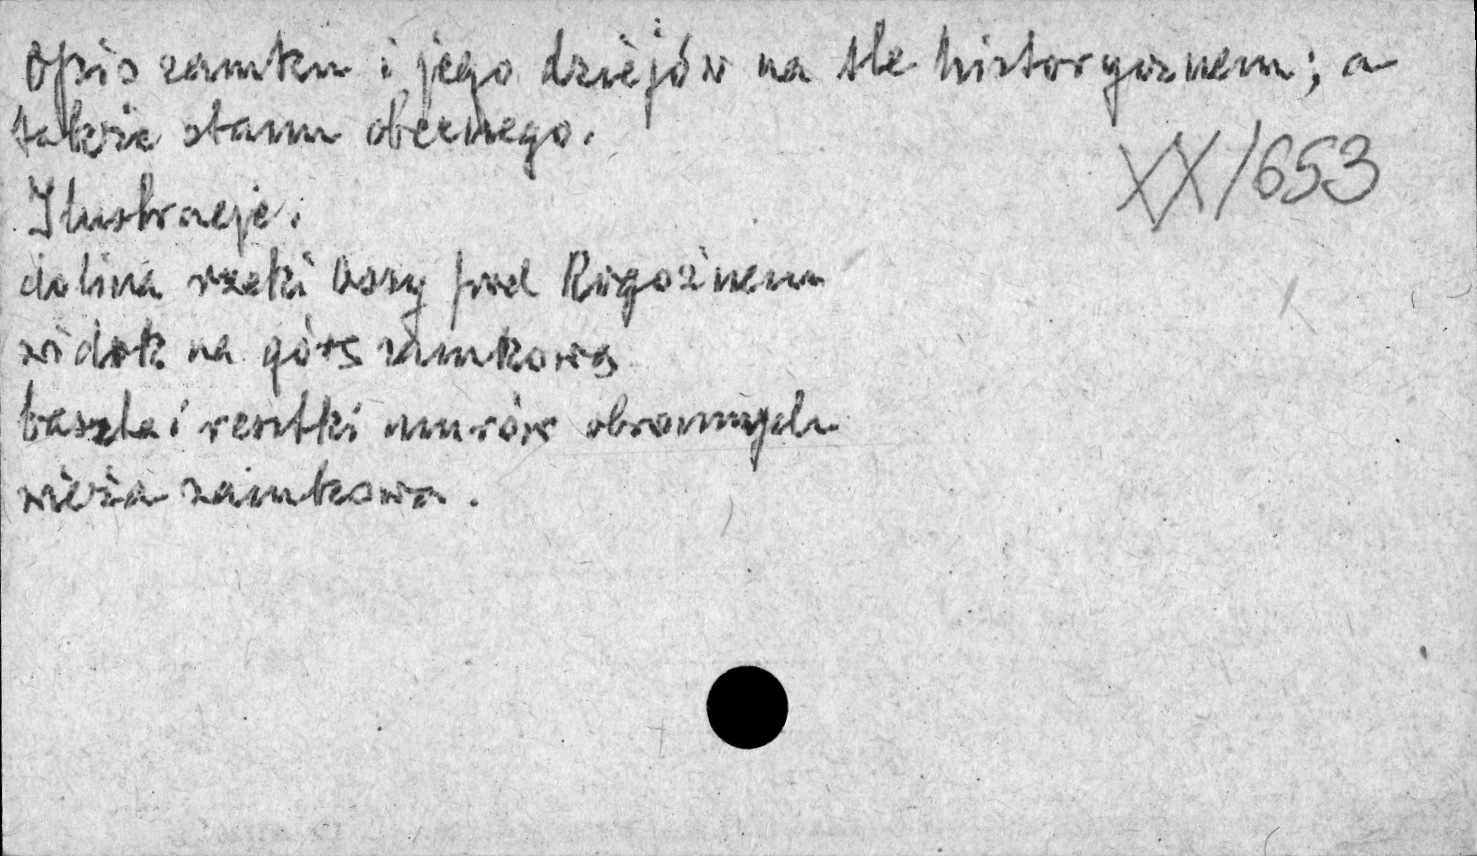 Opis zamku i jego dziejów na tle historycznem; a
także stanu obecnego.
XX/653
Ilustracje.
dolina rzeki Ossy pod Rogoźnem
widok na górę zamkową
baszta i resztki murów obronnych
wieża zamkowa.